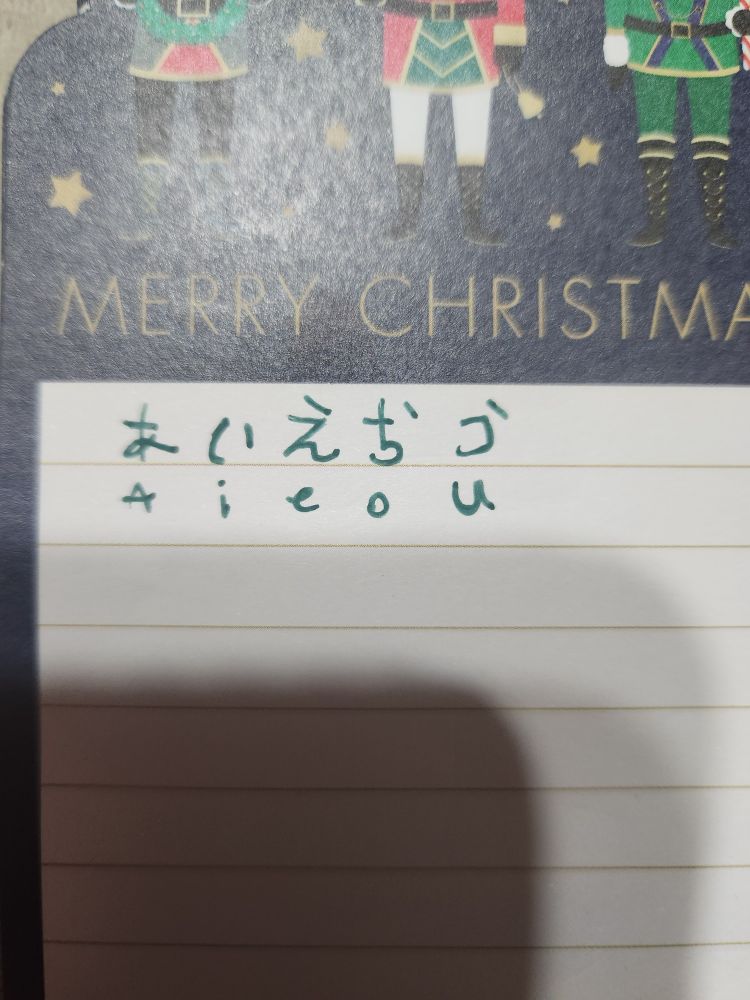 MERRY CHRISTMA
あ い え お う
A i e o u